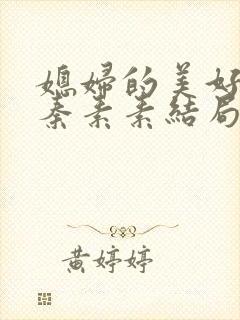 媳婦的美好
秦素素結局
黄婷婷